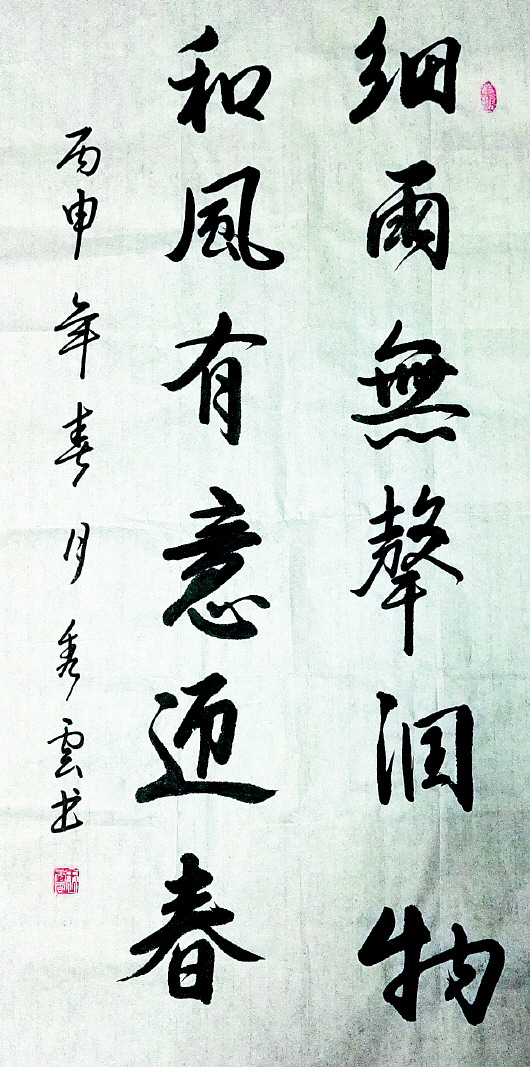 細雨無聲润物
和風有意迎春
丙申年春月秀雲书